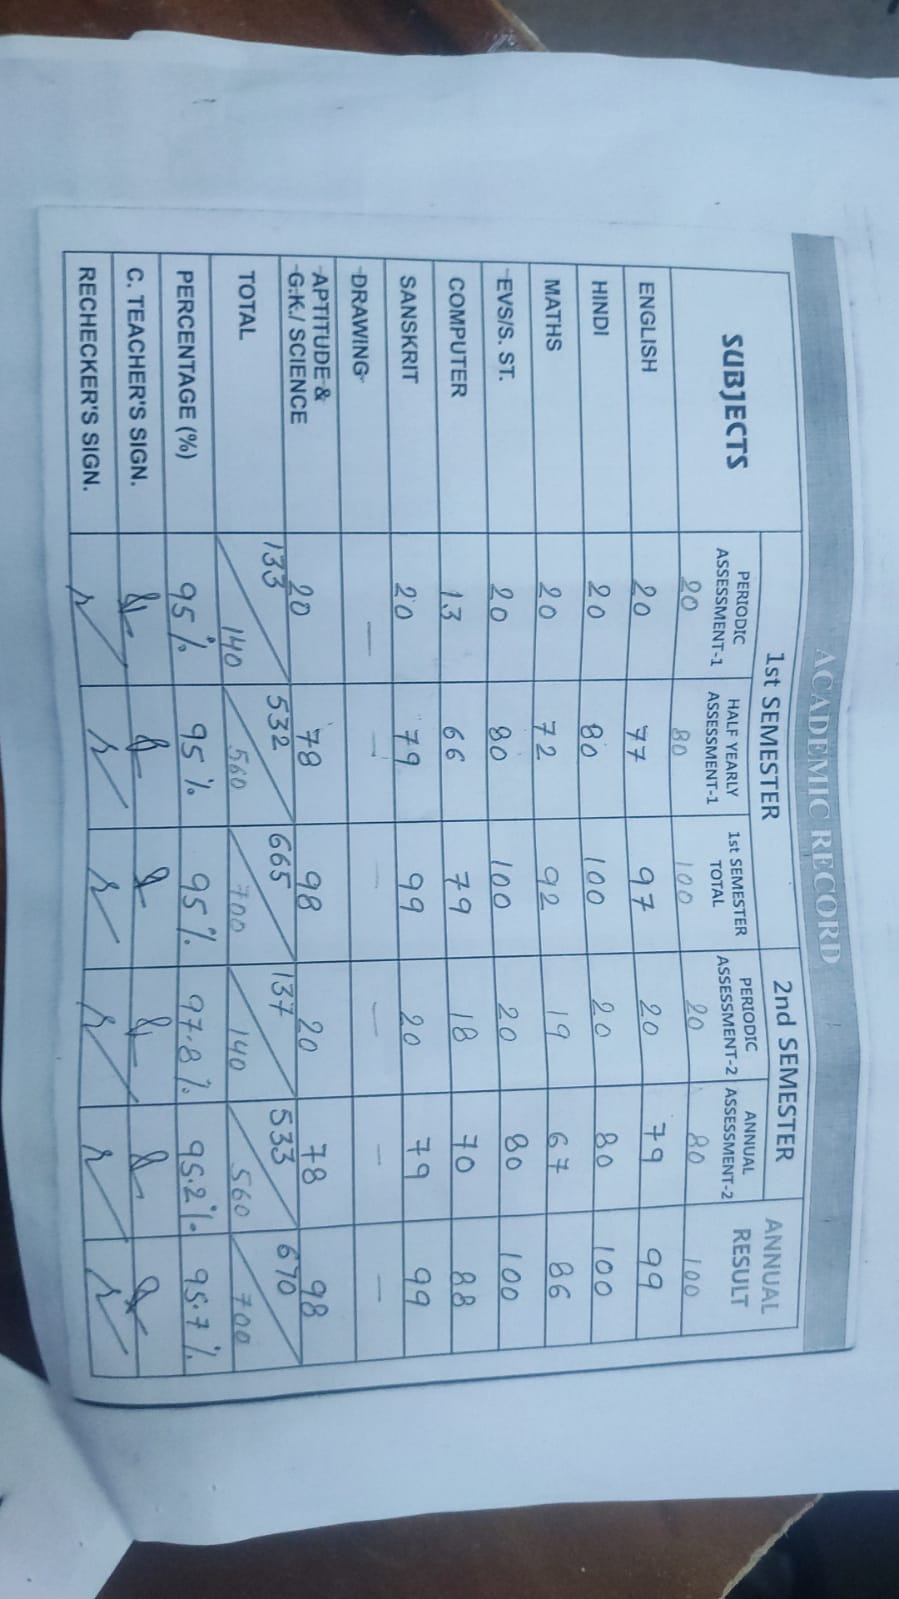 ACADEMIC RECORD
SUBJECTS 1st SEMESTER 2nd SEMESTER ANNUAL RESULT
PERIODIC ASSESSMENT-1 HALF YEARLY ASSESSMENT-1 1st SEMESTER TOTAL PERIODIC ASSESSMENT-2 ANNUAL ASSESSMENT-2
20 80 100 20 80 100
ENGLISH 20 77 97 20 79 99
HINDI 20 80 100 20 80 100
MATHS 20 72 92 19 67 86
EVS/S. ST. 20 80 100 20 80 100
COMPUTER 13 66 79 18 70 88
SANSKRIT 20 79 99 20 79 99
DRAWING — — — — — —
APTITUDE & G.K./ SCIENCE 20 78 98 20 78 98
TOTAL 133/140 532/560 665/700 137/140 533/560 670/700
PERCENTAGE (%) 95% 95% 95% 97.8% 95.2%. 95.7%
C. TEACHER'S SIGN.
RECHECKER'S SIGN.